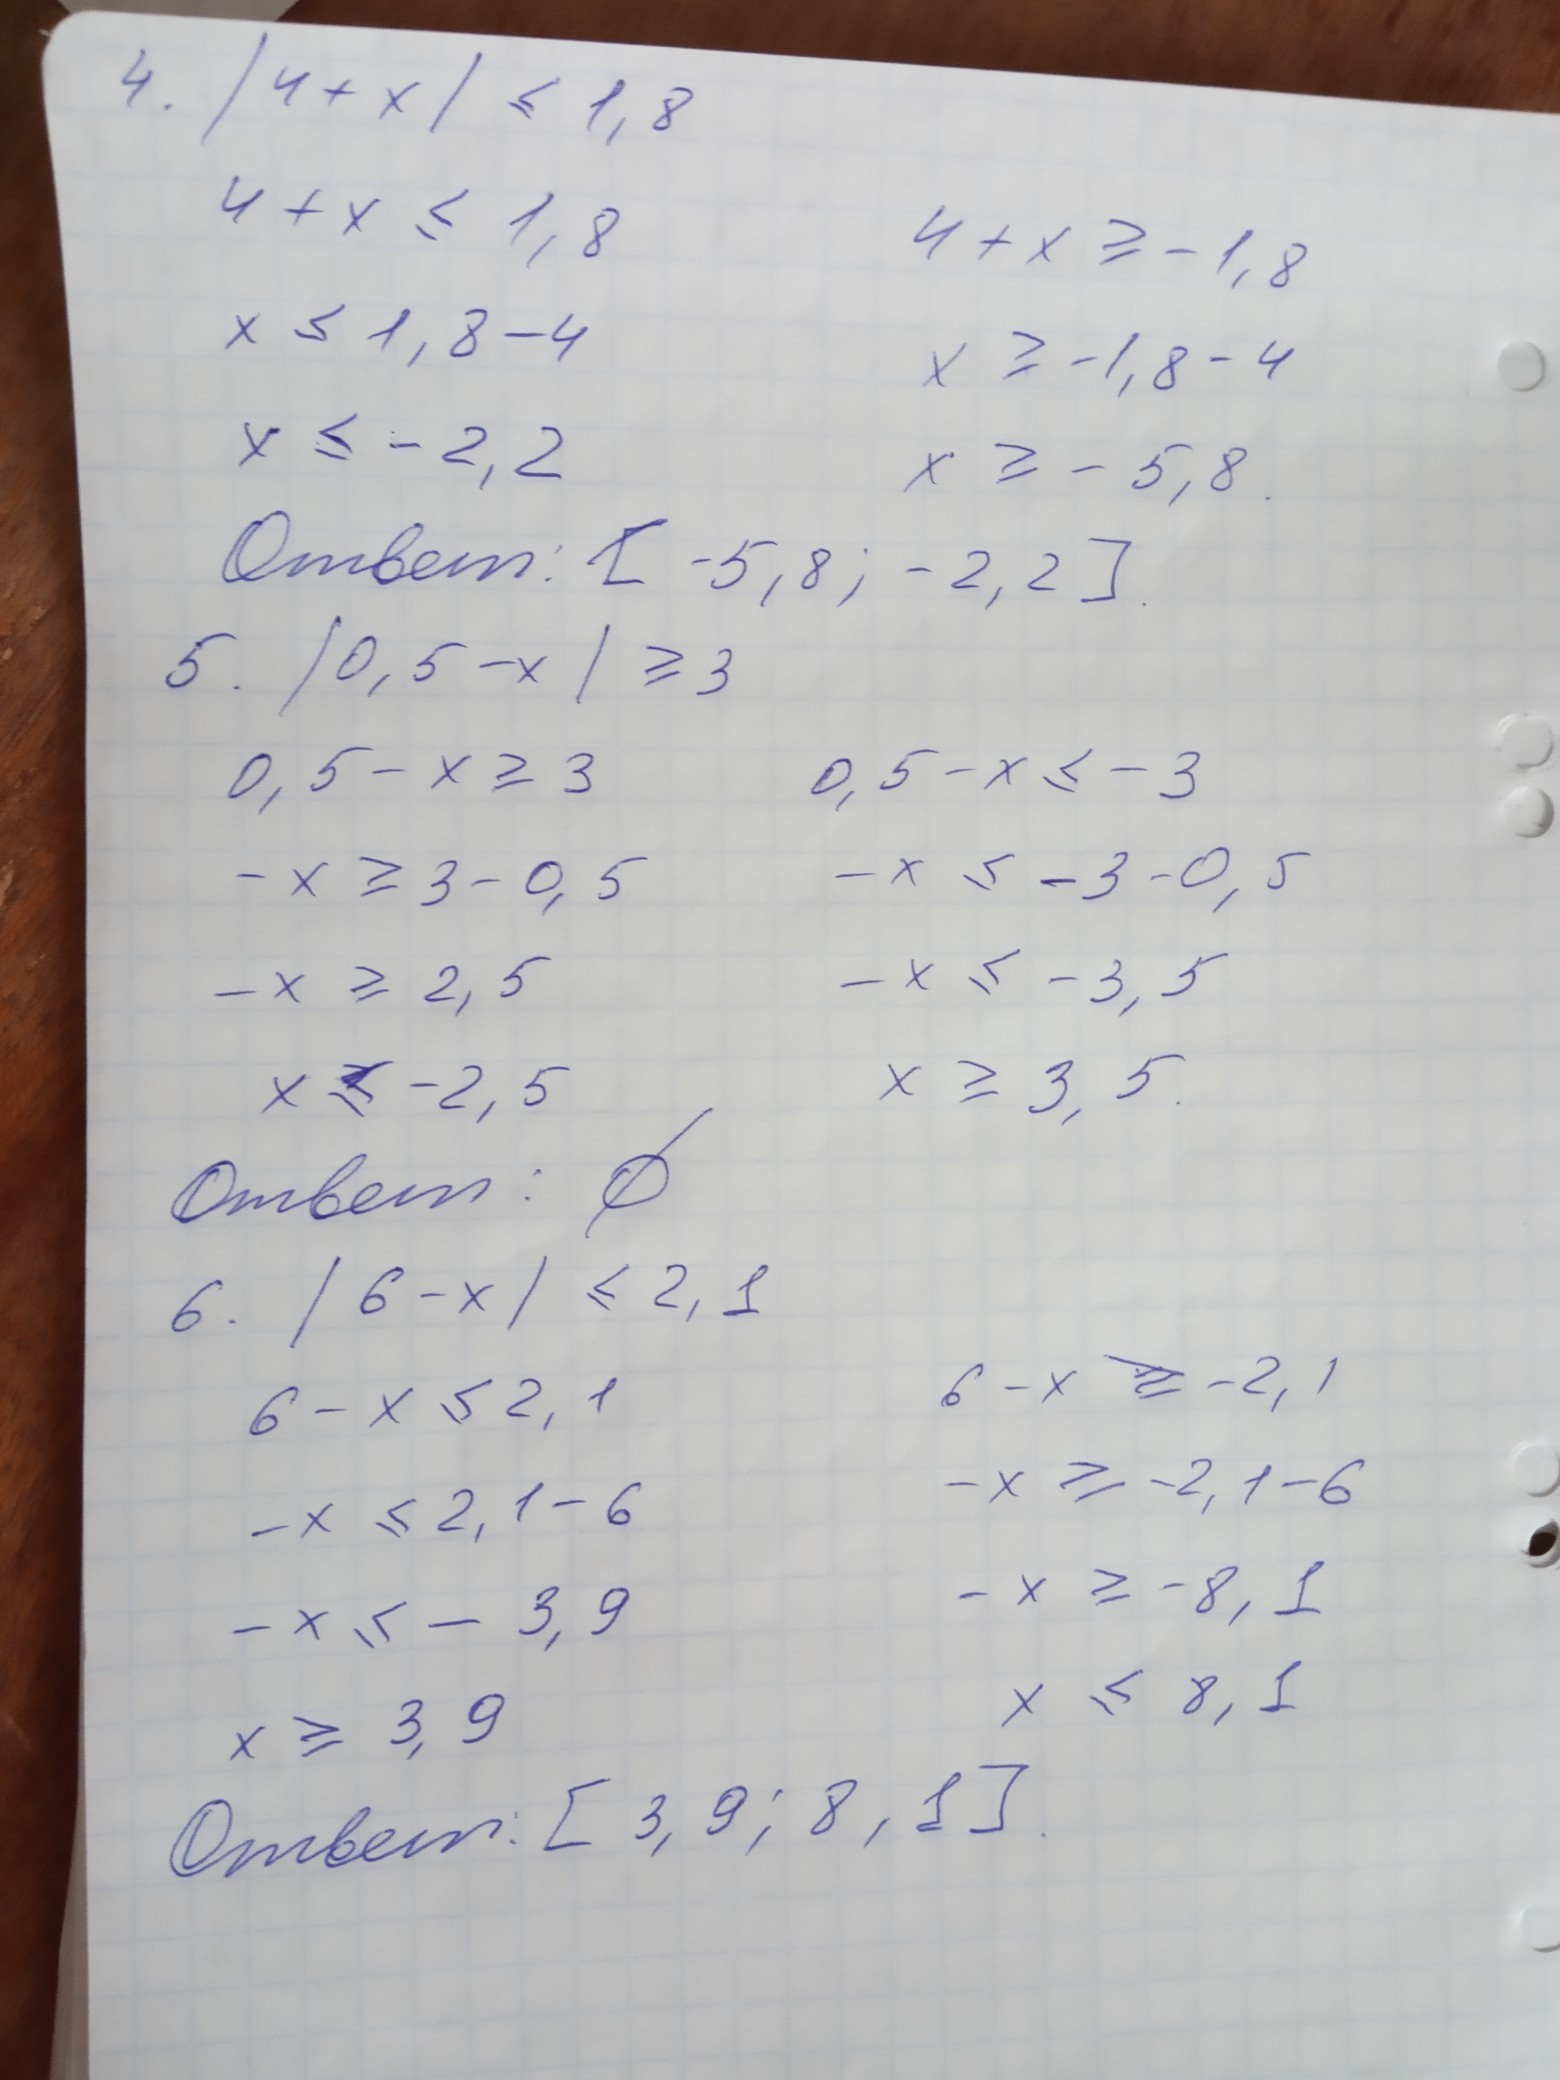 4. |4+x| ≤ 1,8
4+x ≤ 1,8 4+x ≥ -1,8
x ≤ 1,8-4 x ≥ -1,8-4
x ≤ -2,2 x ≥ -5,8.
Ответ: [-5,8; -2,2].
5. |0,5-x| ≥ 3
0,5-x ≥ 3 0,5-x ≤ -3
-x ≥ 3-0,5 -x ≤ -3-0,5
-x ≥ 2,5 -x ≤ -3,5
x ≤ -2,5 x ≥ 3,5.
Ответ: ∅
6. |6-x| ≤ 2,1
6-x ≤ 2,1 6-x ≥ -2,1
-x ≤ 2,1-6 -x ≥ -2,1-6
-x ≤ -3,9 -x ≥ -8,1
x ≥ 3,9 x ≤ 8,1
Ответ: [3,9; 8,1].